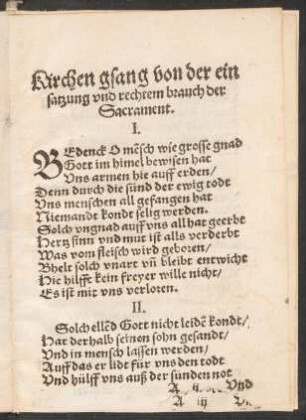 Kirchen gsang von der ein
satzung vnd rechtem brauch der
Sacrament.
I.
BEdenck O mēsch wie grosse gnad
Gott im himel bewisen hat
Vns armen hie auff erden/
Denn durch die sünd der ewig todt
Vns menschen all gefangen hat
Niemandt kondt selig werden.
Solch vngnad auff vns all hat geerbt
Hertz sinn vnd mut ist alls verderbt
Was vom fleisch wird geboren/
Bhelt solch vnart vñ bleibt entwicht
Hie hilfft kein freyer wille nicht/
Es ist mit vns verloren.
II.
Solch ellēd Gott nicht leidē kondt/
Hat derhalb seinen sohn gesandt/
Vnd in mensch lassen werden/
Auff das er lidt für vns den todt
Vnd hülff vns auß der sünden not
A Vnd